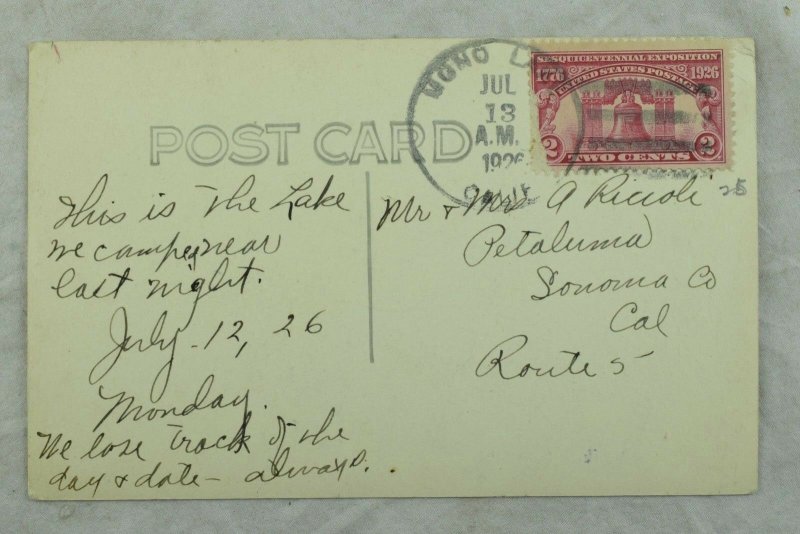 MONO L
JUL
13
A.M.
1926
CALIF
SESQUICENTENNIAL EXPOSITION
1776 UNITED STATES POSTAGE 1926
2 TWO CENTS 2
POST CARD
This is the Lake
we camped near
last night.
July - 12, 26
Monday.
We lose track of the
day & date - always.
Mr & Mrs A Riccoli
Petaluma
Sonoma Co
Cal
Route 5
25